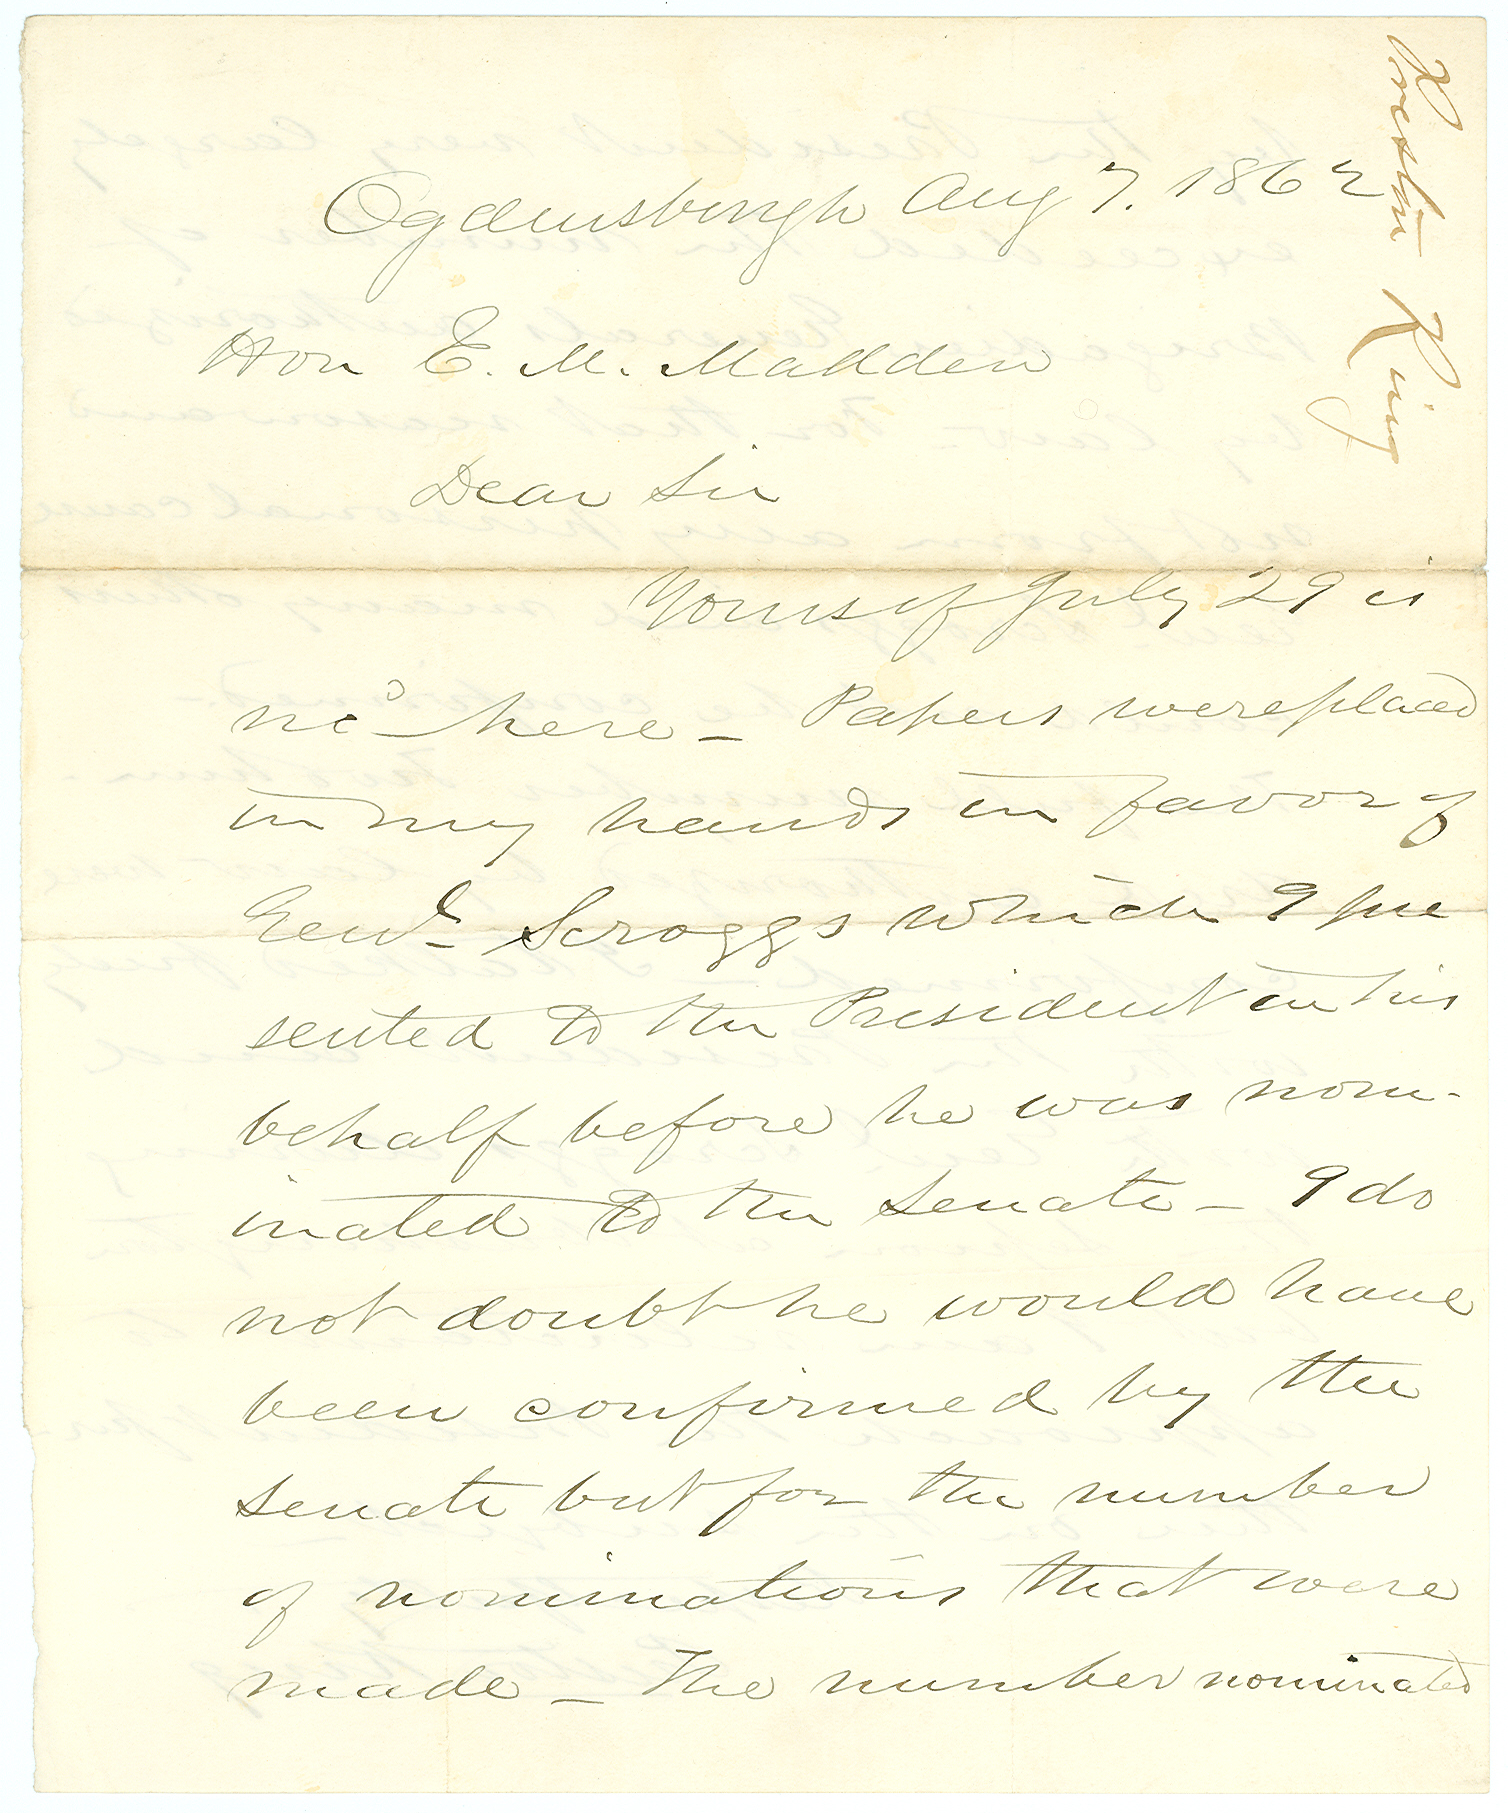 Preston King
Ogdensburgh Aug 7. 1862
Hon E. M. Madden
Dear Sir
Yours of July 29 is
recd here – Papers were placed
in my hands in favor of
Genl Scroggs which I pre
sented to the President in his
behalf before he was nom-
inated to the Senate – I do
not doubt he would have
been confirmed by the
Senate but for the number
of nominations that were
made – The number nominated